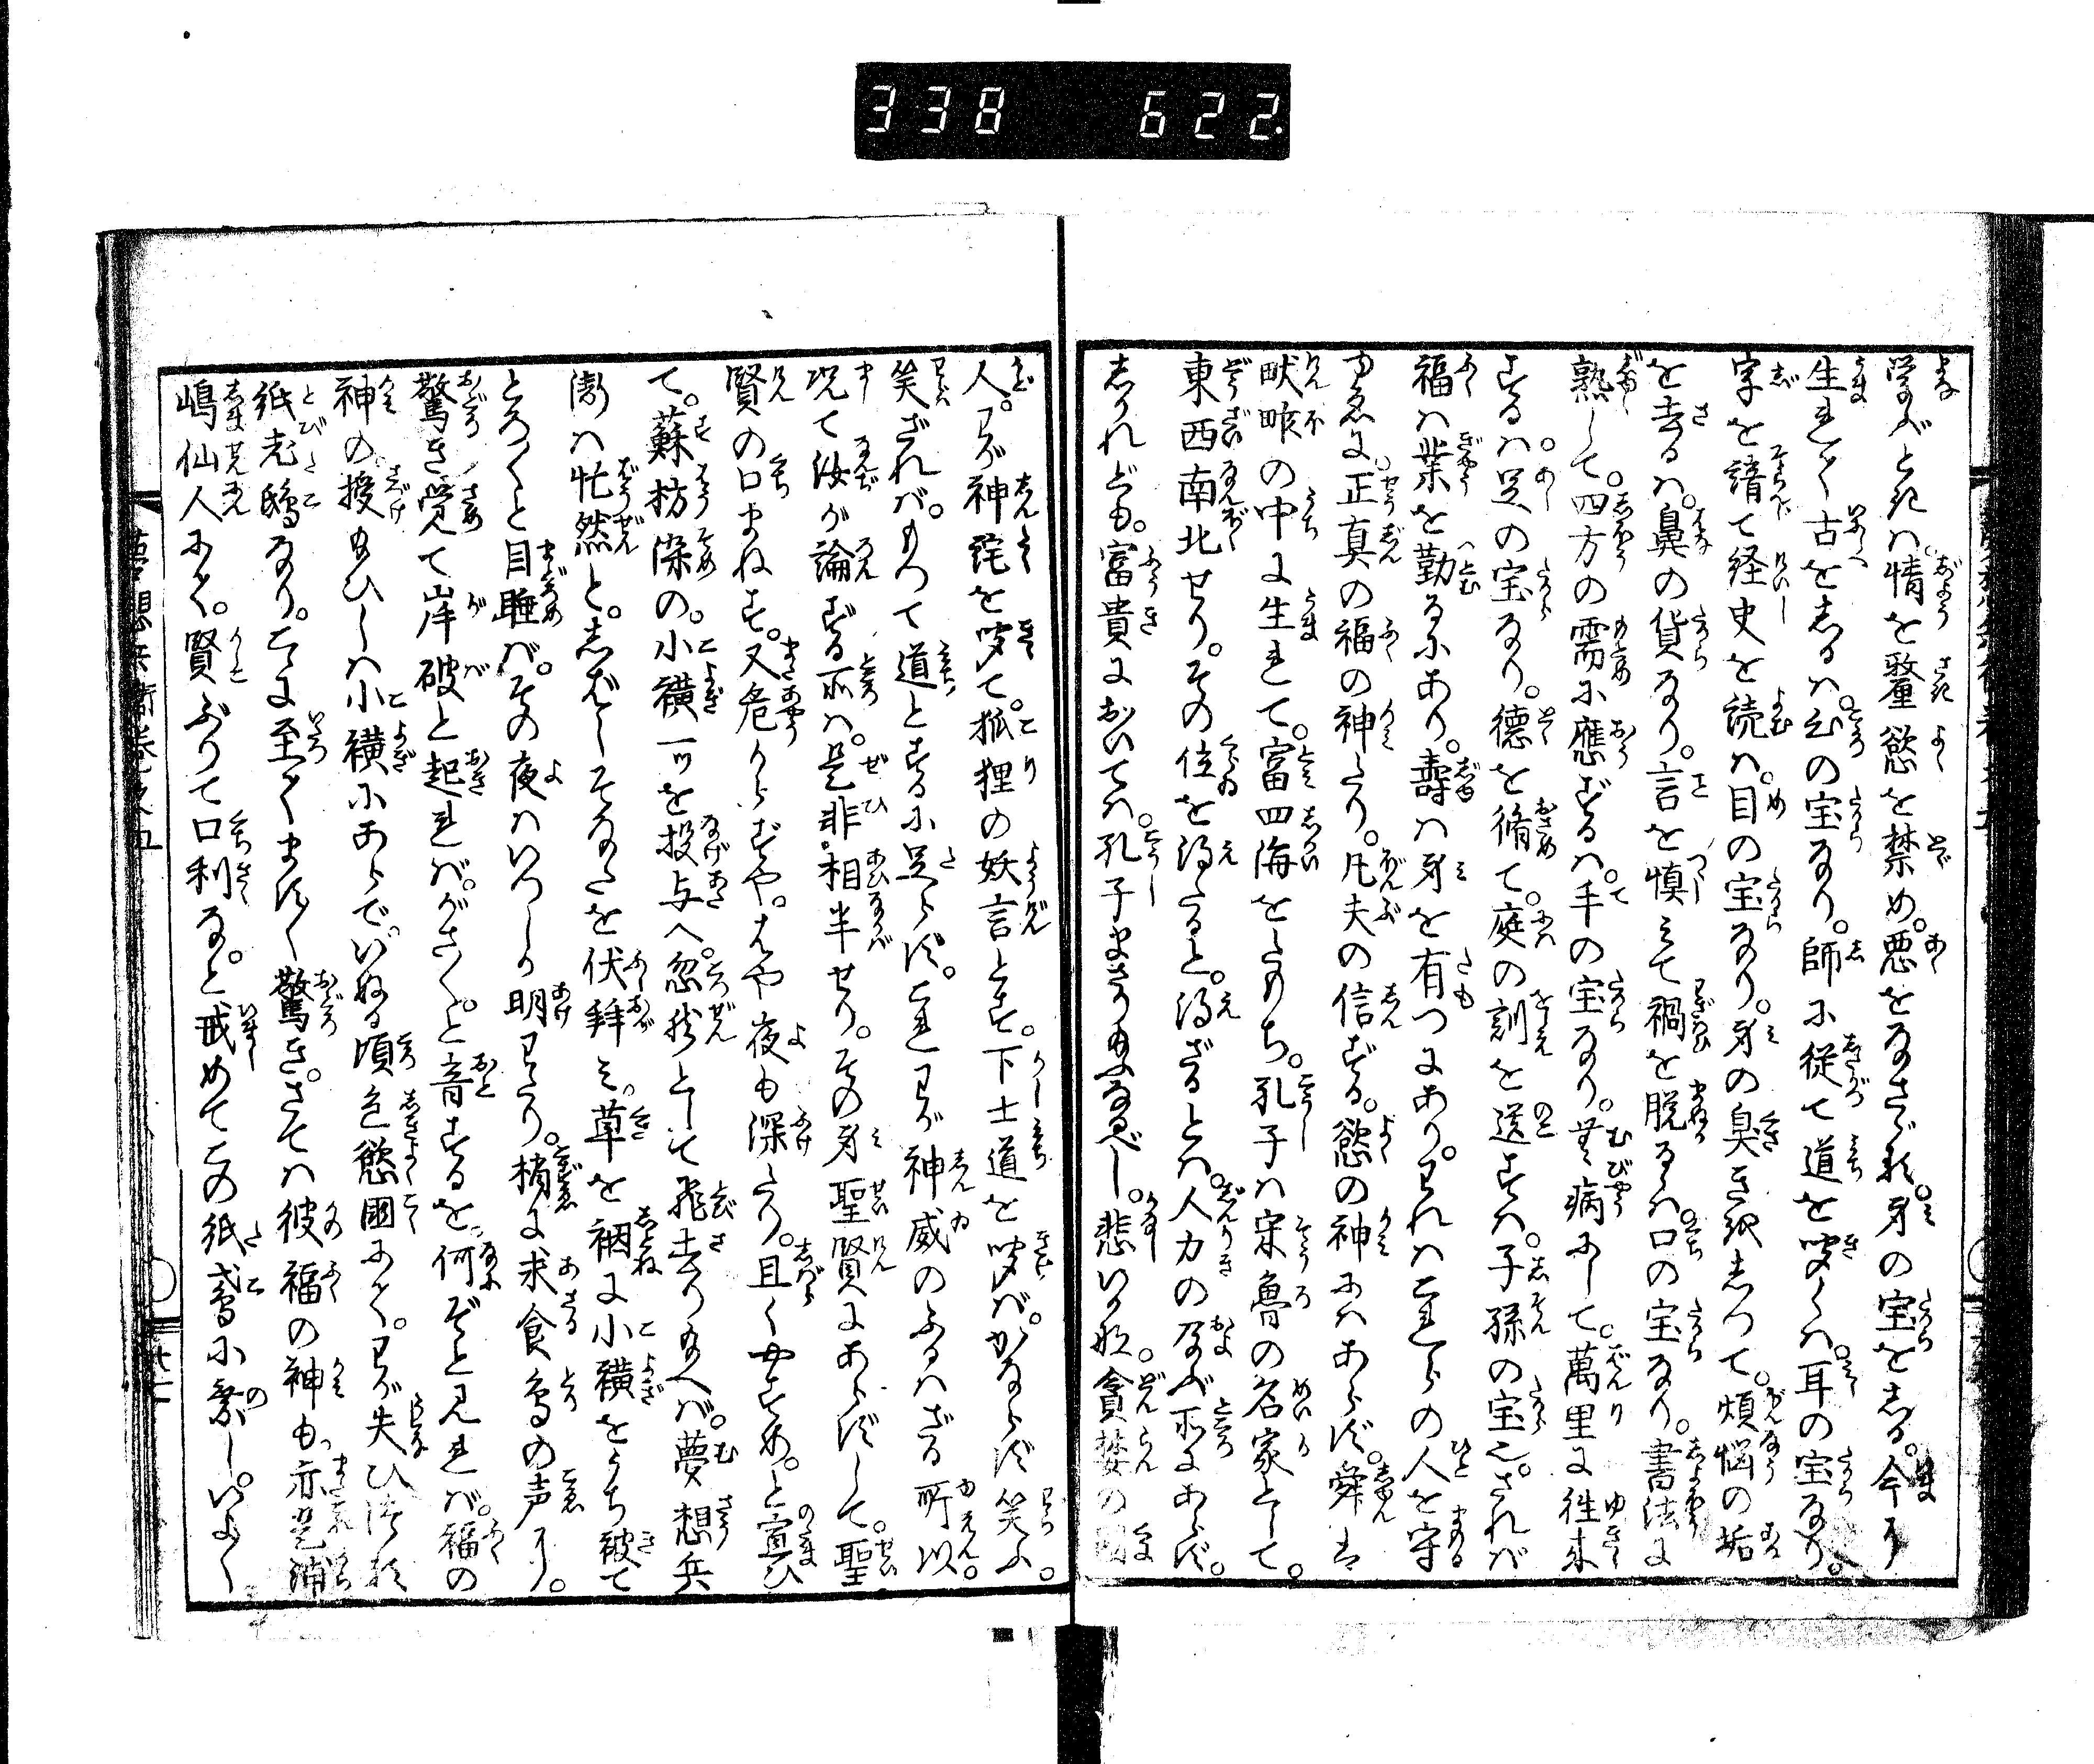 338 622.
学びとれバ情を整慾を禁め。悪をなさざれ。身の宝をしる。今に
生まれて古をしるハ。心の宝なり。師に従て道を聞くハ。耳の宝なり。
字を諳て経史を読ハ。目の宝なり。身の臭き祓しつて。煩悩の垢
を去るハ。鼻の貨なり。言を慎ミて禍を脱るゝハ口の宝なり。書法に
熟して。四方の需に應ずるハ。手の宝なり。無病にして。萬里に往来
するハ。足の宝なり。徳を脩て。庭の訓を遺すハ。子孫の宝也。されバ
福ハ業を勤るにあり。壽ハ身を有つにあり。われハこれらの人を守
ゆゑに。正真の福の神たり。凡夫の信ずる。慾の神にハあらず。舜ハ
畎畝の中に生れて。富四海をたもち。孔子ハ宋魯の名家として。
東西南北せり。その位を得たると。得ざるとハ。人力の及ぶ所にあらず。
しかれども。富貴においてハ。孔子まさり給ふなるべし。悲いかな。貪婪の国
人。わが神詫を聞て。狐狸の妖言とす。下士道を聞バ。かならず笑ふ。
笑ざれバ。もつて道とするに足らず。これわが神威のふるハざる所以。
況て汝が論ずる所ハ。是非相半せり。その身聖賢にあらずして。聖
賢の口まねす。又危からずや。はや夜も深たり。且く安すめ。と宣ひ
て。蘇枋染の。小襖一ッを投与へ。忽然として飛去り給へバ。夢想兵
衛ハ忙然と。しばしそなたを伏拝ミ。草を裀に小襖をうち被て
とろ〳〵と目睡バ。その夜ハいつしか明わたり。梢に求食鳥の声に。
驚き覚て岸破と起れバ。がさ〳〵。と音するを。何ぞと見れバ。福の
神の授給ひしハ小襖にあらで。いぬる頃色慾國にて。わが失ひつる
紙老鴟なり。こゝに至てます〳〵驚き。さてハ彼福の神も亦是浦
嶋仙人にて。賢ぶりて口利な。と戒めてこの紙鳶に乗し。いよ〳〵
夢想兵衛巻之五